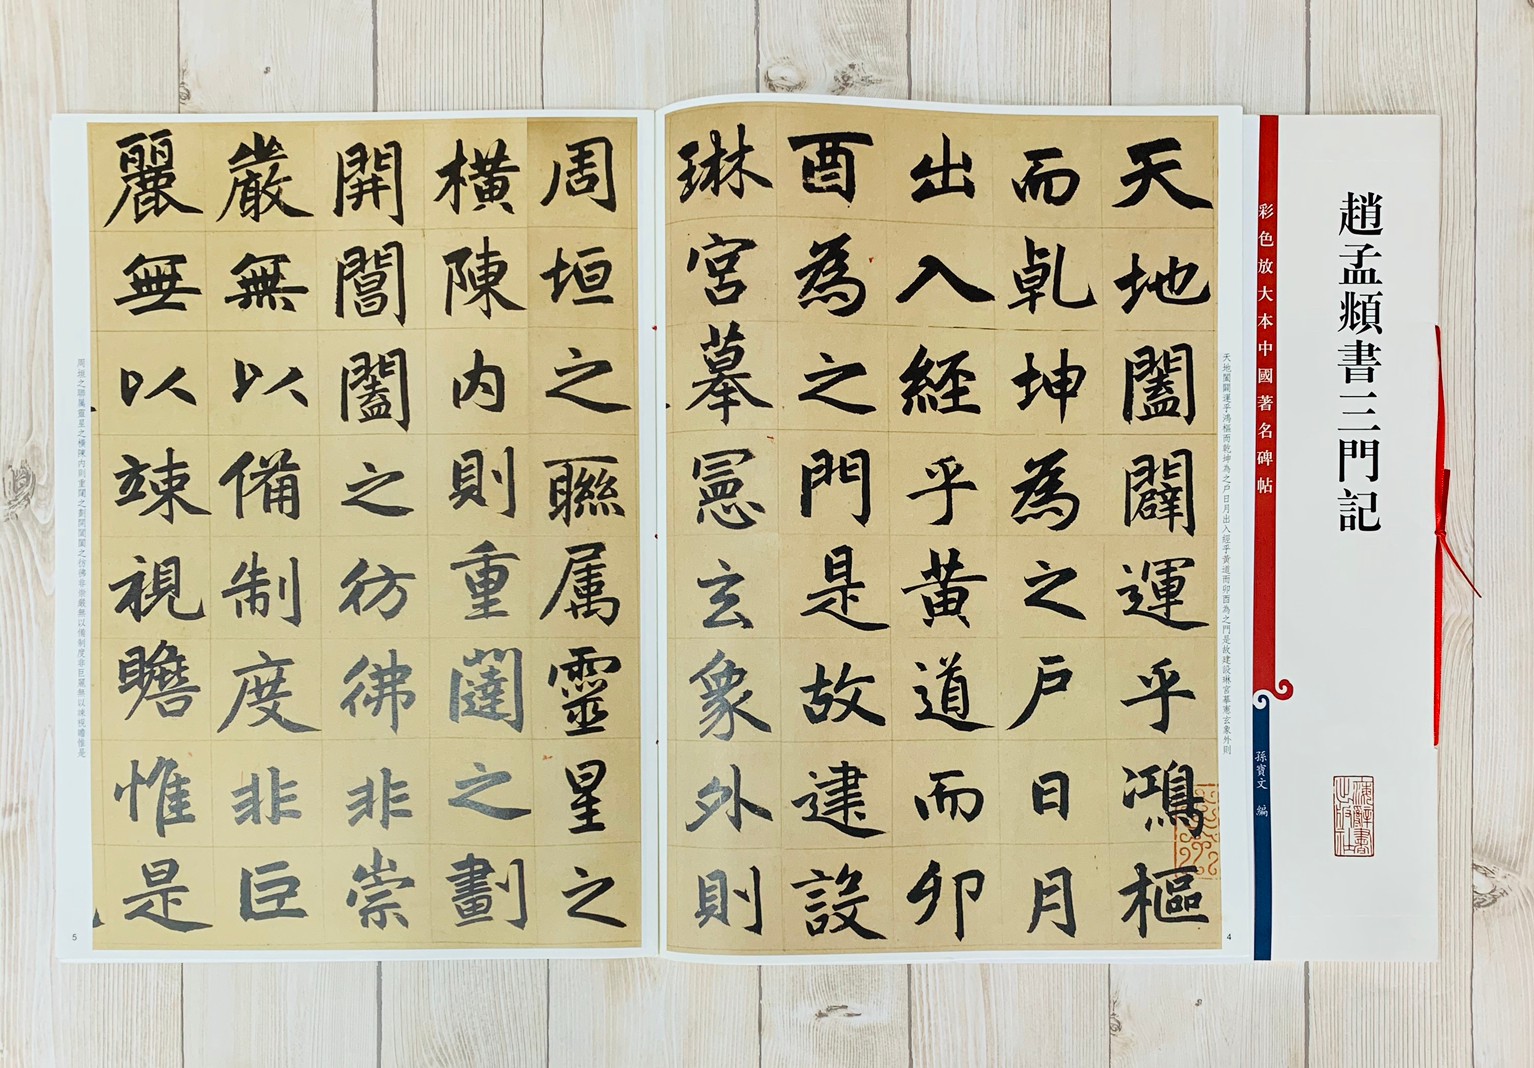 趙孟頫書三門記
彩色放大本中國著名碑帖
孫寶文 編
天地闔闢運乎鴻樞而乾坤為之戶日月出入經乎黃道而卯酉為之門是故建設琳宮摹憲玄象外則
4
天地闔闢運乎鴻樞
而乾坤為之戶日月
出入經乎黃道而卯
酉為之門是故建設
琳宮摹憲玄象外則
周垣之聯属靈星之
橫陳内則重闥之劃
開閶闔之彷彿非崇
嚴無以備制度非巨
麗無以竦視瞻惟是
周垣之聯属靈星之橫陳内則重闥之劃開閶闔之彷彿非崇嚴無以備制度非巨麗無以竦視瞻惟是
5